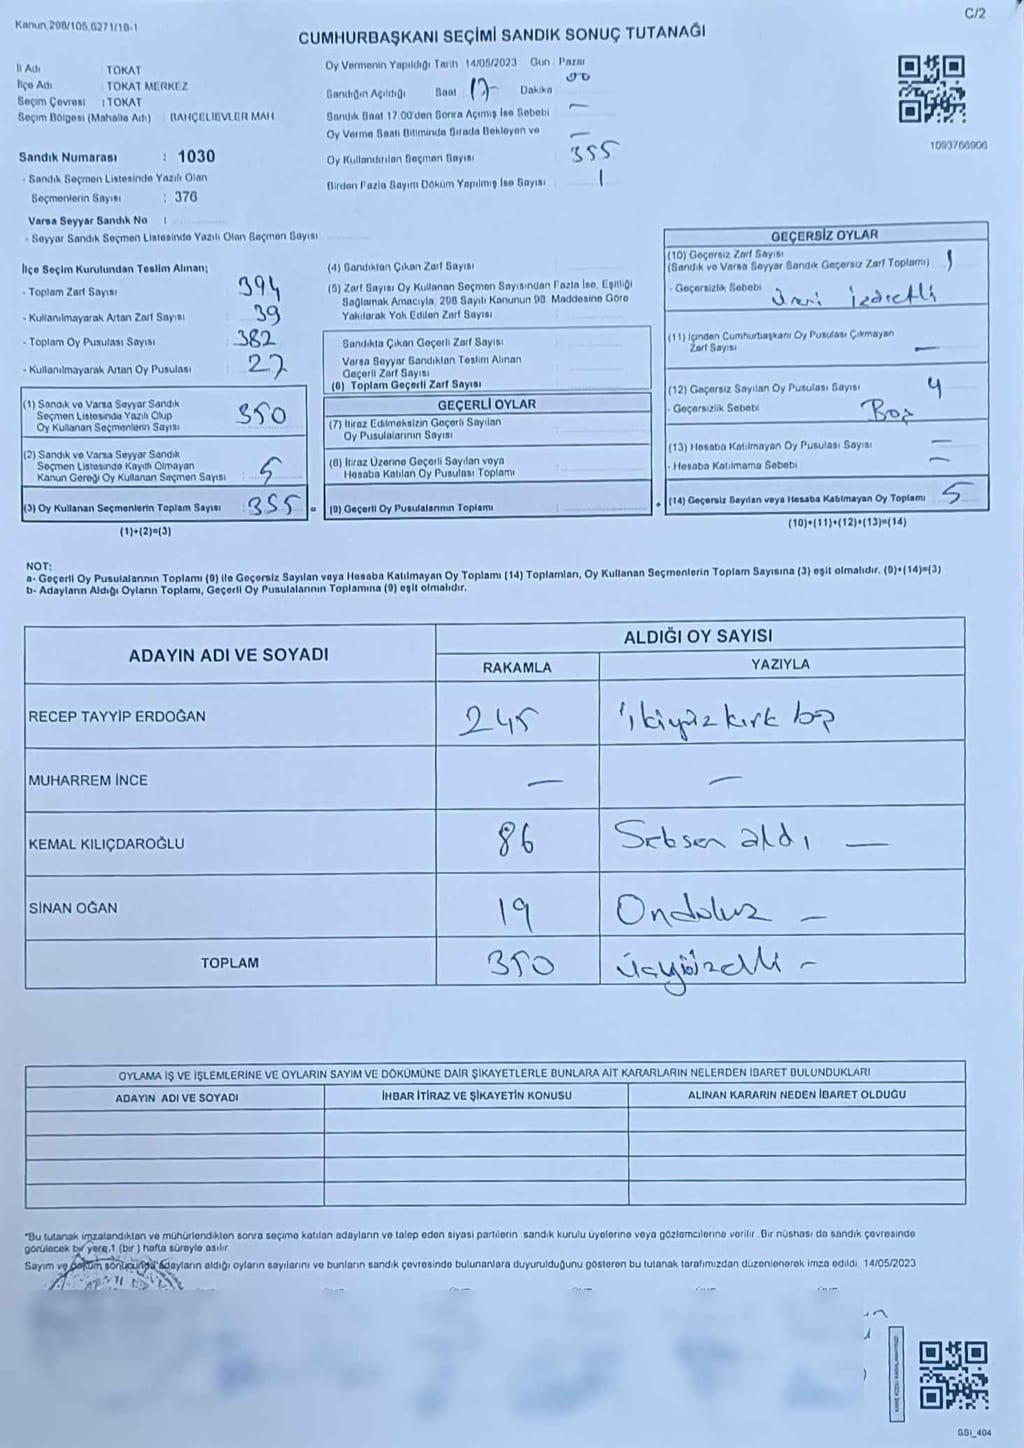 Kanun.298/105,6271/18-1
C/2
CUMHURBAŞKANI SEÇİMİ SANDIK SONUÇ TUTANAĞI
İl Adı : TOKAT
İlçe Adı : TOKAT MERKEZ
Seçim Çevresi : TOKAT
Seçim Bölgesi (Mahalle Adı) : BAHÇELİEVLER MAH.
Sandık Numarası : 1030
- Sandık Seçmen Listesinde Yazılı Olan
Seçmenlerin Sayısı : 376
Varsa Seyyar Sandık No :
- Seyyar Sandık Seçmen Listesinde Yazılı Olan Seçmen Sayısı
Oy Vermenin Yapıldığı Tarih 14/05/2023 Gün : Pazar
Sandığın Açıldığı Saat 17- Dakika 00
Sandık Saat 17:00'den Sonra Açmış İse Sebebi —
Oy Verme Saati Bitiminde Sırada Bekleyen ve —
Oy Kullandırılan Seçmen Sayısı 355
Birden Fazla Sayım Döküm Yapılmış İse Sayısı 1
1093766906
İlçe Seçim Kurulundan Teslim Alınan;
- Toplam Zarf Sayısı 394
- Kullanılmayarak Artan Zarf Sayısı 39
- Toplam Oy Pusulası Sayısı : 382
- Kullanılmayarak Artan Oy Pusulası 27
(1) Sandık ve Varsa Seyyar Sandık
Seçmen Listesinde Yazılı Olup
Oy Kullanan Seçmenlerin Sayısı 350
(2) Sandık ve Varsa Seyyar Sandık
Seçmen Listesinde Kayıtlı Olmayan
Kanun Gereği Oy Kullanan Seçmen Sayısı : 5
(3) Oy Kullanan Seçmenlerin Toplam Sayısı : 355 =
(1)+(2)=(3)
(4) Sandıktan Çıkan Zarf Sayısı
(5) Zarf Sayısı Oy Kullanan Seçmen Sayısından Fazla İse, Eşitliği
Sağlamak Amacıyla, 298 Sayılı Kanunun 98. Maddesine Göre
Yakılarak Yok Edilen Zarf Sayısı
Sandıkta Çıkan Geçerli Zarf Sayısı
Varsa Seyyar Sandıktan Teslim Alınan
Geçerli Zarf Sayısı
(6) Toplam Geçerli Zarf Sayısı
GEÇERLİ OYLAR
(7) İtiraz Edilmeksizin Geçerli Sayılan
Oy Pusulalarının Sayısı
(8) İtiraz Üzerine Geçerli Sayılan veya
Hesaba Katılan Oy Pusulası Toplamı
(9) Geçerli Oy Pusulalarının Toplamı +
GEÇERSİZ OYLAR
(10) Geçersiz Zarf Sayısı
(Sandık ve Varsa Seyyar Sandık Geçersiz Zarf Toplamı) 1
- Geçersizlik Sebebi
(11) İçinden Cumhurbaşkanı Oy Pusulası Çıkmayan
Zarf Sayısı —
(12) Geçersiz Sayılan Oy Pusulası Sayısı 4
- Geçersizlik Sebebi Boş
(13) Hesaba Katılmayan Oy Pusulası Sayısı —
- Hesaba Katılmama Sebebi —
(14) Geçersiz Sayılan veya Hesaba Katılmayan Oy Toplamı 5
(10)+(11)+(12)+(13)=(14)
NOT:
a- Geçerli Oy Pusulalarının Toplamı (9) ile Geçersiz Sayılan veya Hesaba Katılmayan Oy Toplamı (14) Toplamları, Oy Kullanan Seçmenlerin Toplam Sayısına (3) eşit olmalıdır. (9)+(14)=(3)
b- Adayların Aldığı Oyların Toplamı, Geçerli Oy Pusulalarının Toplamına (9) eşit olmalıdır.
ADAYIN ADI VE SOYADI
ALDIĞI OY SAYISI
RAKAMLA YAZIYLA
RECEP TAYYİP ERDOĞAN 245 ikiyüzkırk beş
MUHARREM İNCE — —
KEMAL KILIÇDAROĞLU 86 Seksen altı —
SİNAN OĞAN 19 Ondokuz —
TOPLAM 350 üçyüzelli –
OYLAMA İŞ VE İŞLEMLERİNE VE OYLARIN SAYIM VE DÖKÜMÜNE DAİR ŞİKAYETLERLE BUNLARA AİT KARARLARIN NELERDEN İBARET BULUNDUKLARI
ADAYIN ADI VE SOYADI İHBAR İTİRAZ VE ŞİKAYETİN KONUSU ALINAN KARARIN NEDEN İBARET OLDUĞU
*Bu tutanak imzalandıktan ve mühürlendikten sonra seçime katılan adayların ve talep eden siyasi partilerin sandık kurulu üyelerine veya gözlemcilerine verilir. Bir nüshası da sandık çevresinde
görülecek bir yere,1 (bir ) hafta süreyle asılır.
Sayım ve döküm sonucunda adayların aldığı oyların sayılarını ve bunların sandık çevresinde bulunanlara duyurulduğunu gösteren bu tutanak tarafımızdan düzenlenerek imza edildi. 14/05/2023
GSI_404